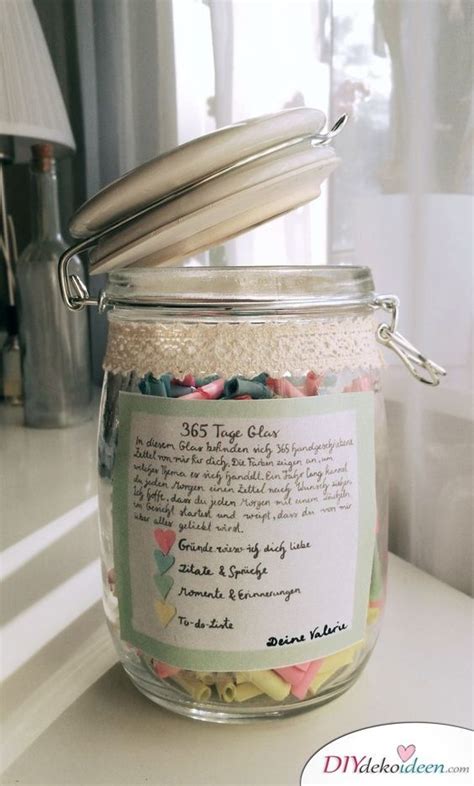 365 Tage Glas
In diesem Glas befinden sich 365 handgeschriebene
Zettel von mir für dich. Die Farben zeigen an, um
welches Thema es sich handelt. Ein Jahr lang kannst
du jeden Morgen einen Zettel nach Wunsch ziehen.
Ich hoffe, dass du jeden Morgen mit einem Lächeln
im Gesicht startest und weißt, dass du von mir
über alles geliebt wirst.
Gründe wieso ich dich liebe
Zitate & Sprüche
Momente & Erinnerungen
To-do-Liste
Deine Valerie
DIYdekoideen.com